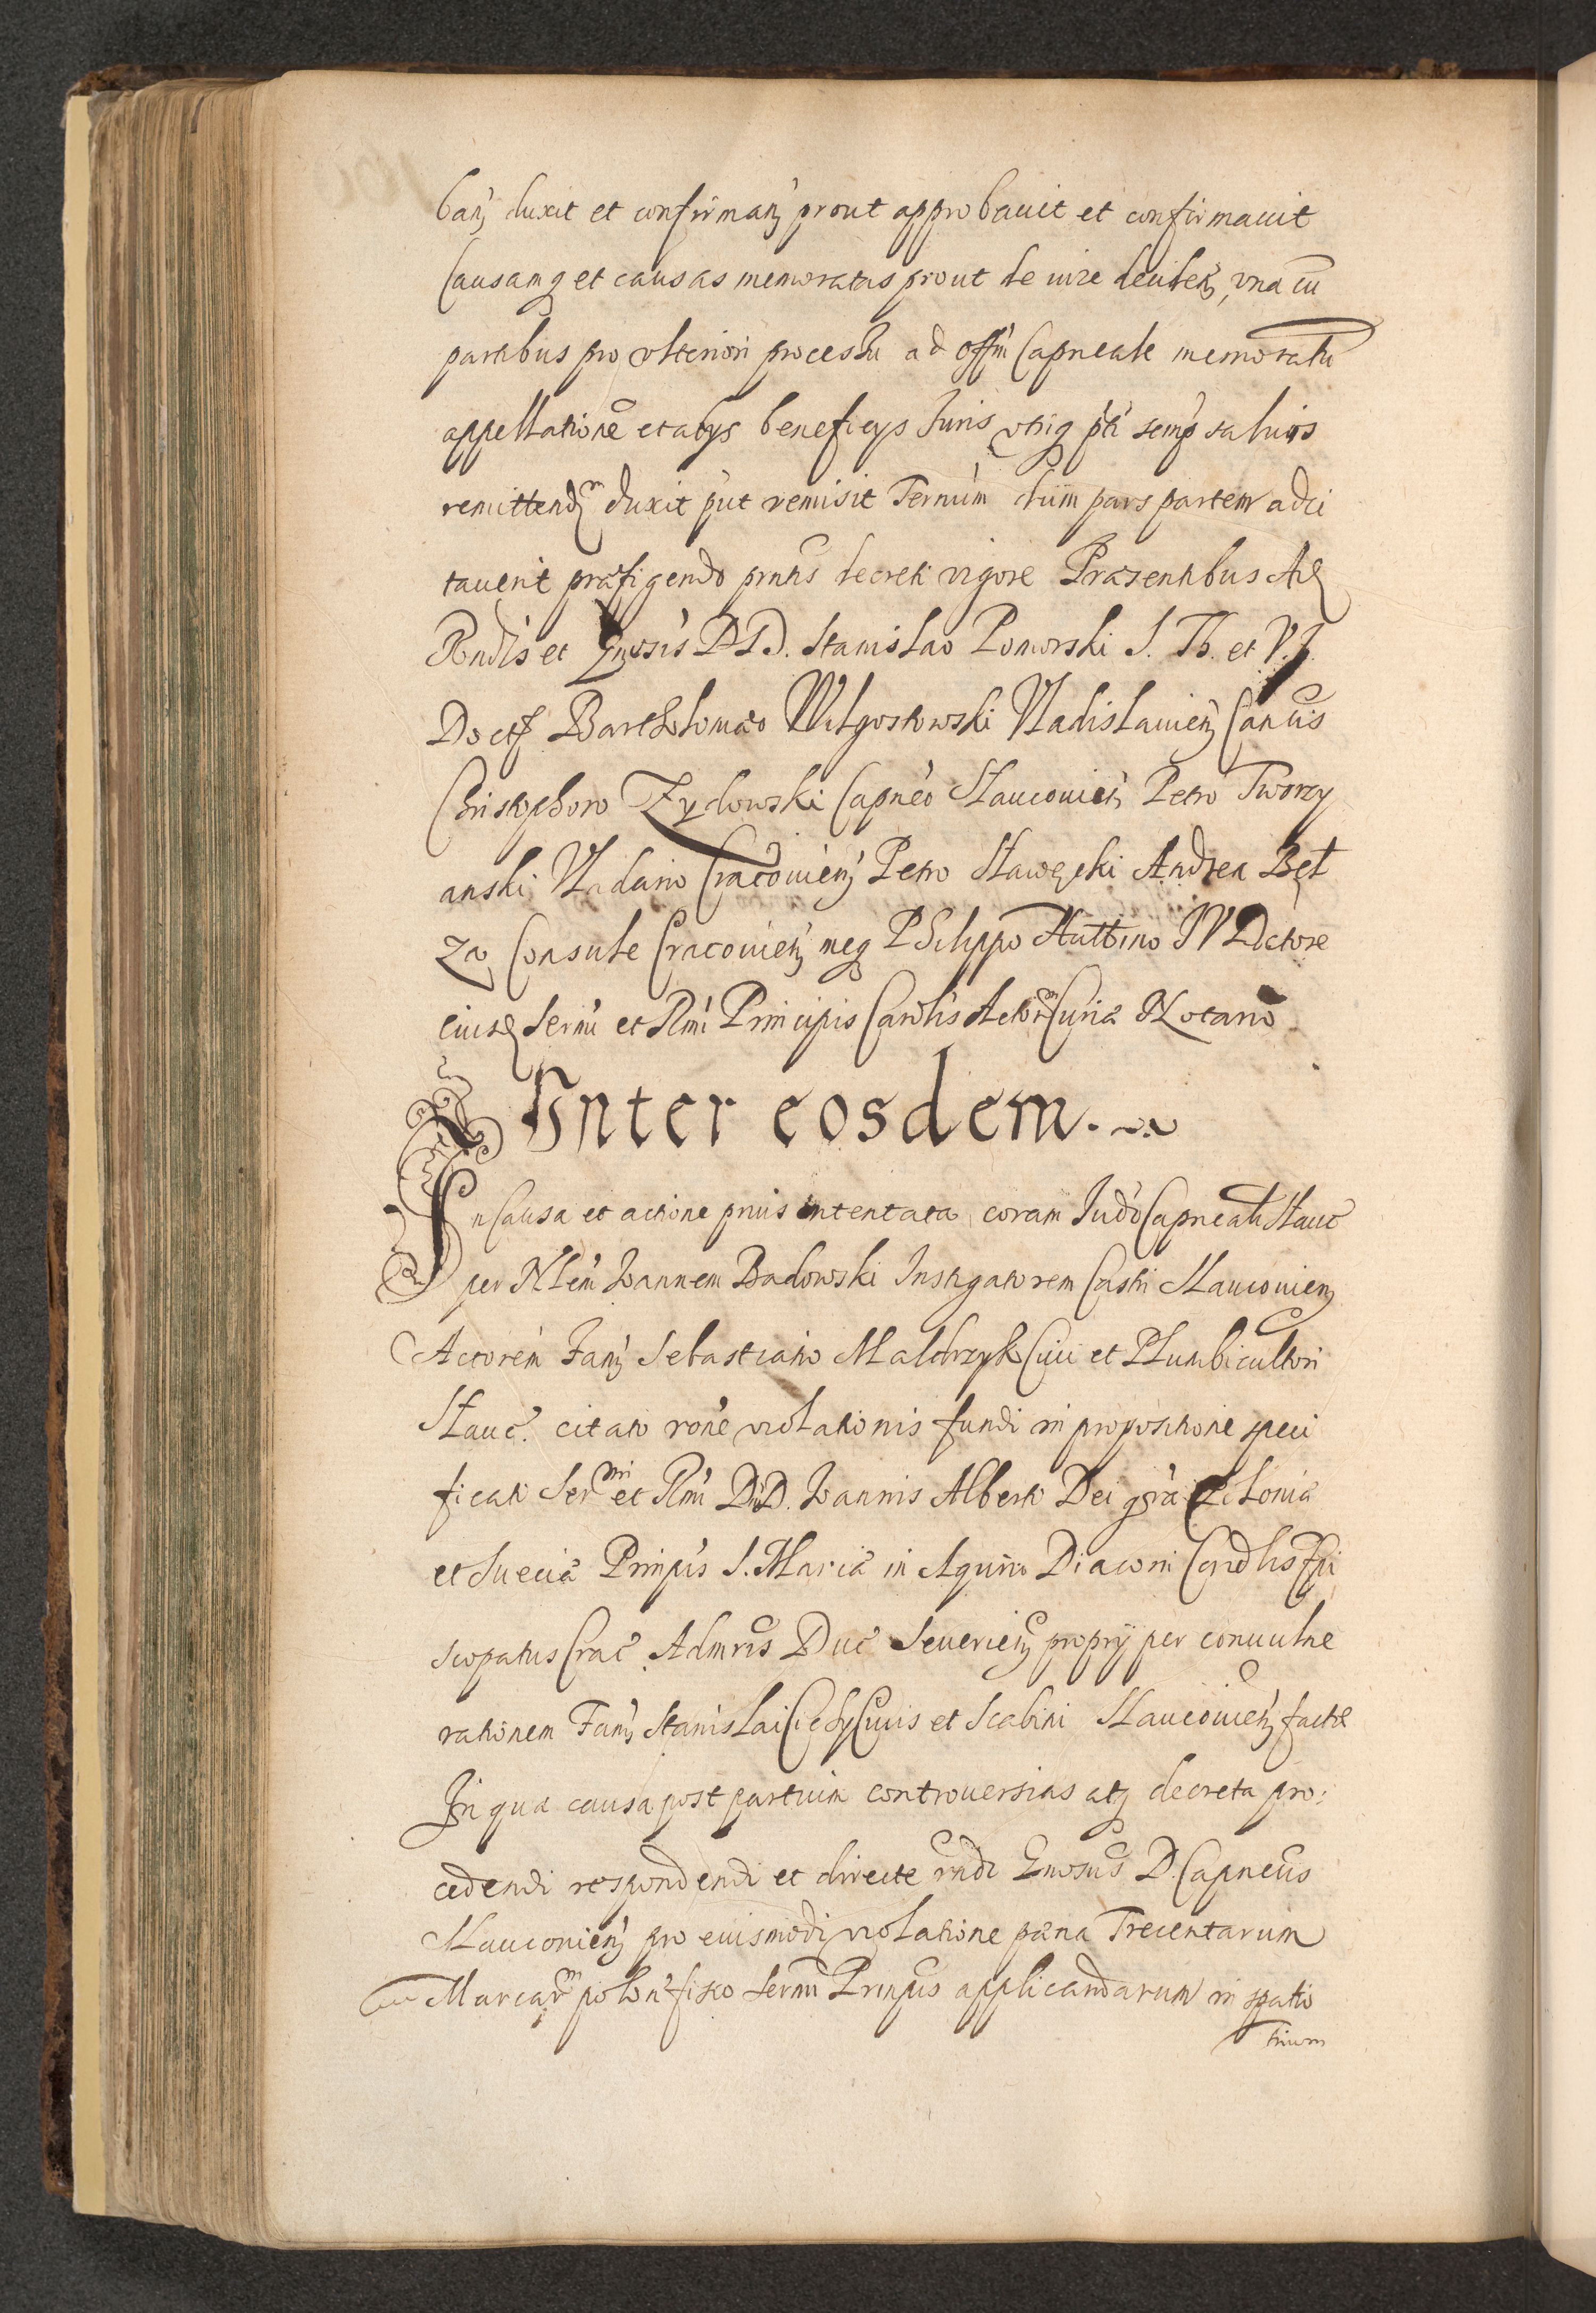 banꝫ duxit et confirmanꝫ prout approbauit et confirmauit
Causamq et causas memoratas prout de iure deuoluẽ, vna cũ
partibus pro vlteriori processu ad offm̃ Capneale memoratũ
appellatione et alys beneficys Iuris vtriq pti semp saluis
remittendm duxit put remisit Termum dum pars partem adci
tauerit præfigendo pntis decreti vigore Præsentibus Ad
Rendis et Gnosis DD. Stanislao Pomorski S. Th. et V. I.
Doct Bartholomæo Wilgostowski Vladislauienꝫ Cancis
Christophoro Zydowski Capneo Slauconienꝫ Petro Tworzy
anski Vladario Cracouienꝫ Petro Slawęcki Andrea Bęl
za Consule Cracouienꝫ meq Philippo Huttino IV Doctore
eiusd Sermi et Rmi Principis Cardlis Actorm Curiæ Notario
Inter eosdem.
In Causa et actione prius intentata coram Iudo Capneali Slauc
per Nlem Ioannem Badowski Instigatorem Castri Slauconienꝫ
Actorem Famꝫ Sebastiano Malchrzyk Ciui et Plumbicultori
Slauc. citato rone violationis fundi in propositione speci
ficati Sermi et Rmi DnD. Ioannis Alberti Dei gra Poloniæ
et Sueciæ Prinpis S. Mariæ in Aquiro Diaconi Cardlis Epi
scopatus Crac Admris Duc Seuerienꝫ proprij per conuulne
rationem Famꝫ Stanislai Cichy Ciuis et Scabini Slauconienꝫ factæ
In qua causa post partium controuersias atq decreta pro:
cedendi respondendi et directe rndi Gnosus D. Capneus
Slauconienꝫ pro eiusmodi violatione pæna Trecentarum
Marcarm polon fisco Sermi Prinpis applicandarum in spatio
trium